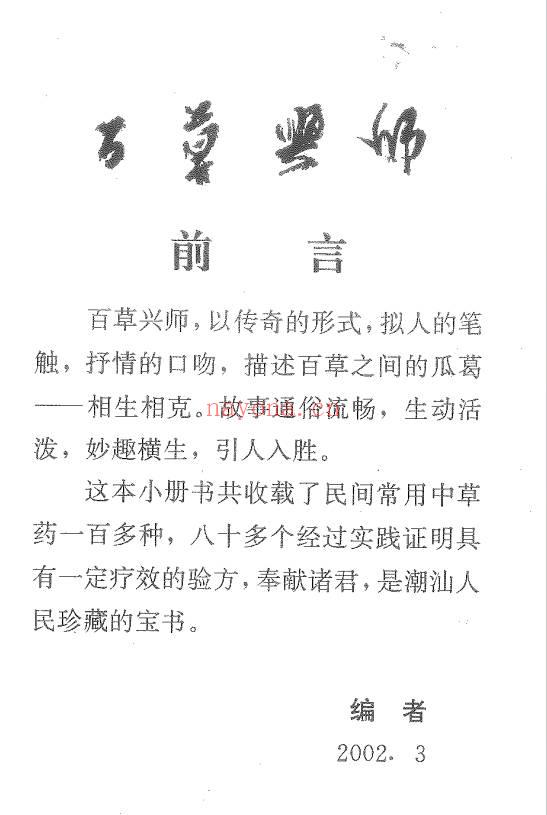 百草興师
前言
百草兴师,以传奇的形式,拟人的笔
触,抒情的口吻,描述百草之间的瓜葛
——相生相克。故事通俗流畅,生动活
泼,妙趣横生,引人入胜。
这本小册书共收载了民间常用中草
药一百多种,八十多个经过实践证明具
有一定疗效的验方,奉献诸君,是潮汕人
民珍藏的宝书。
编者
2002.3